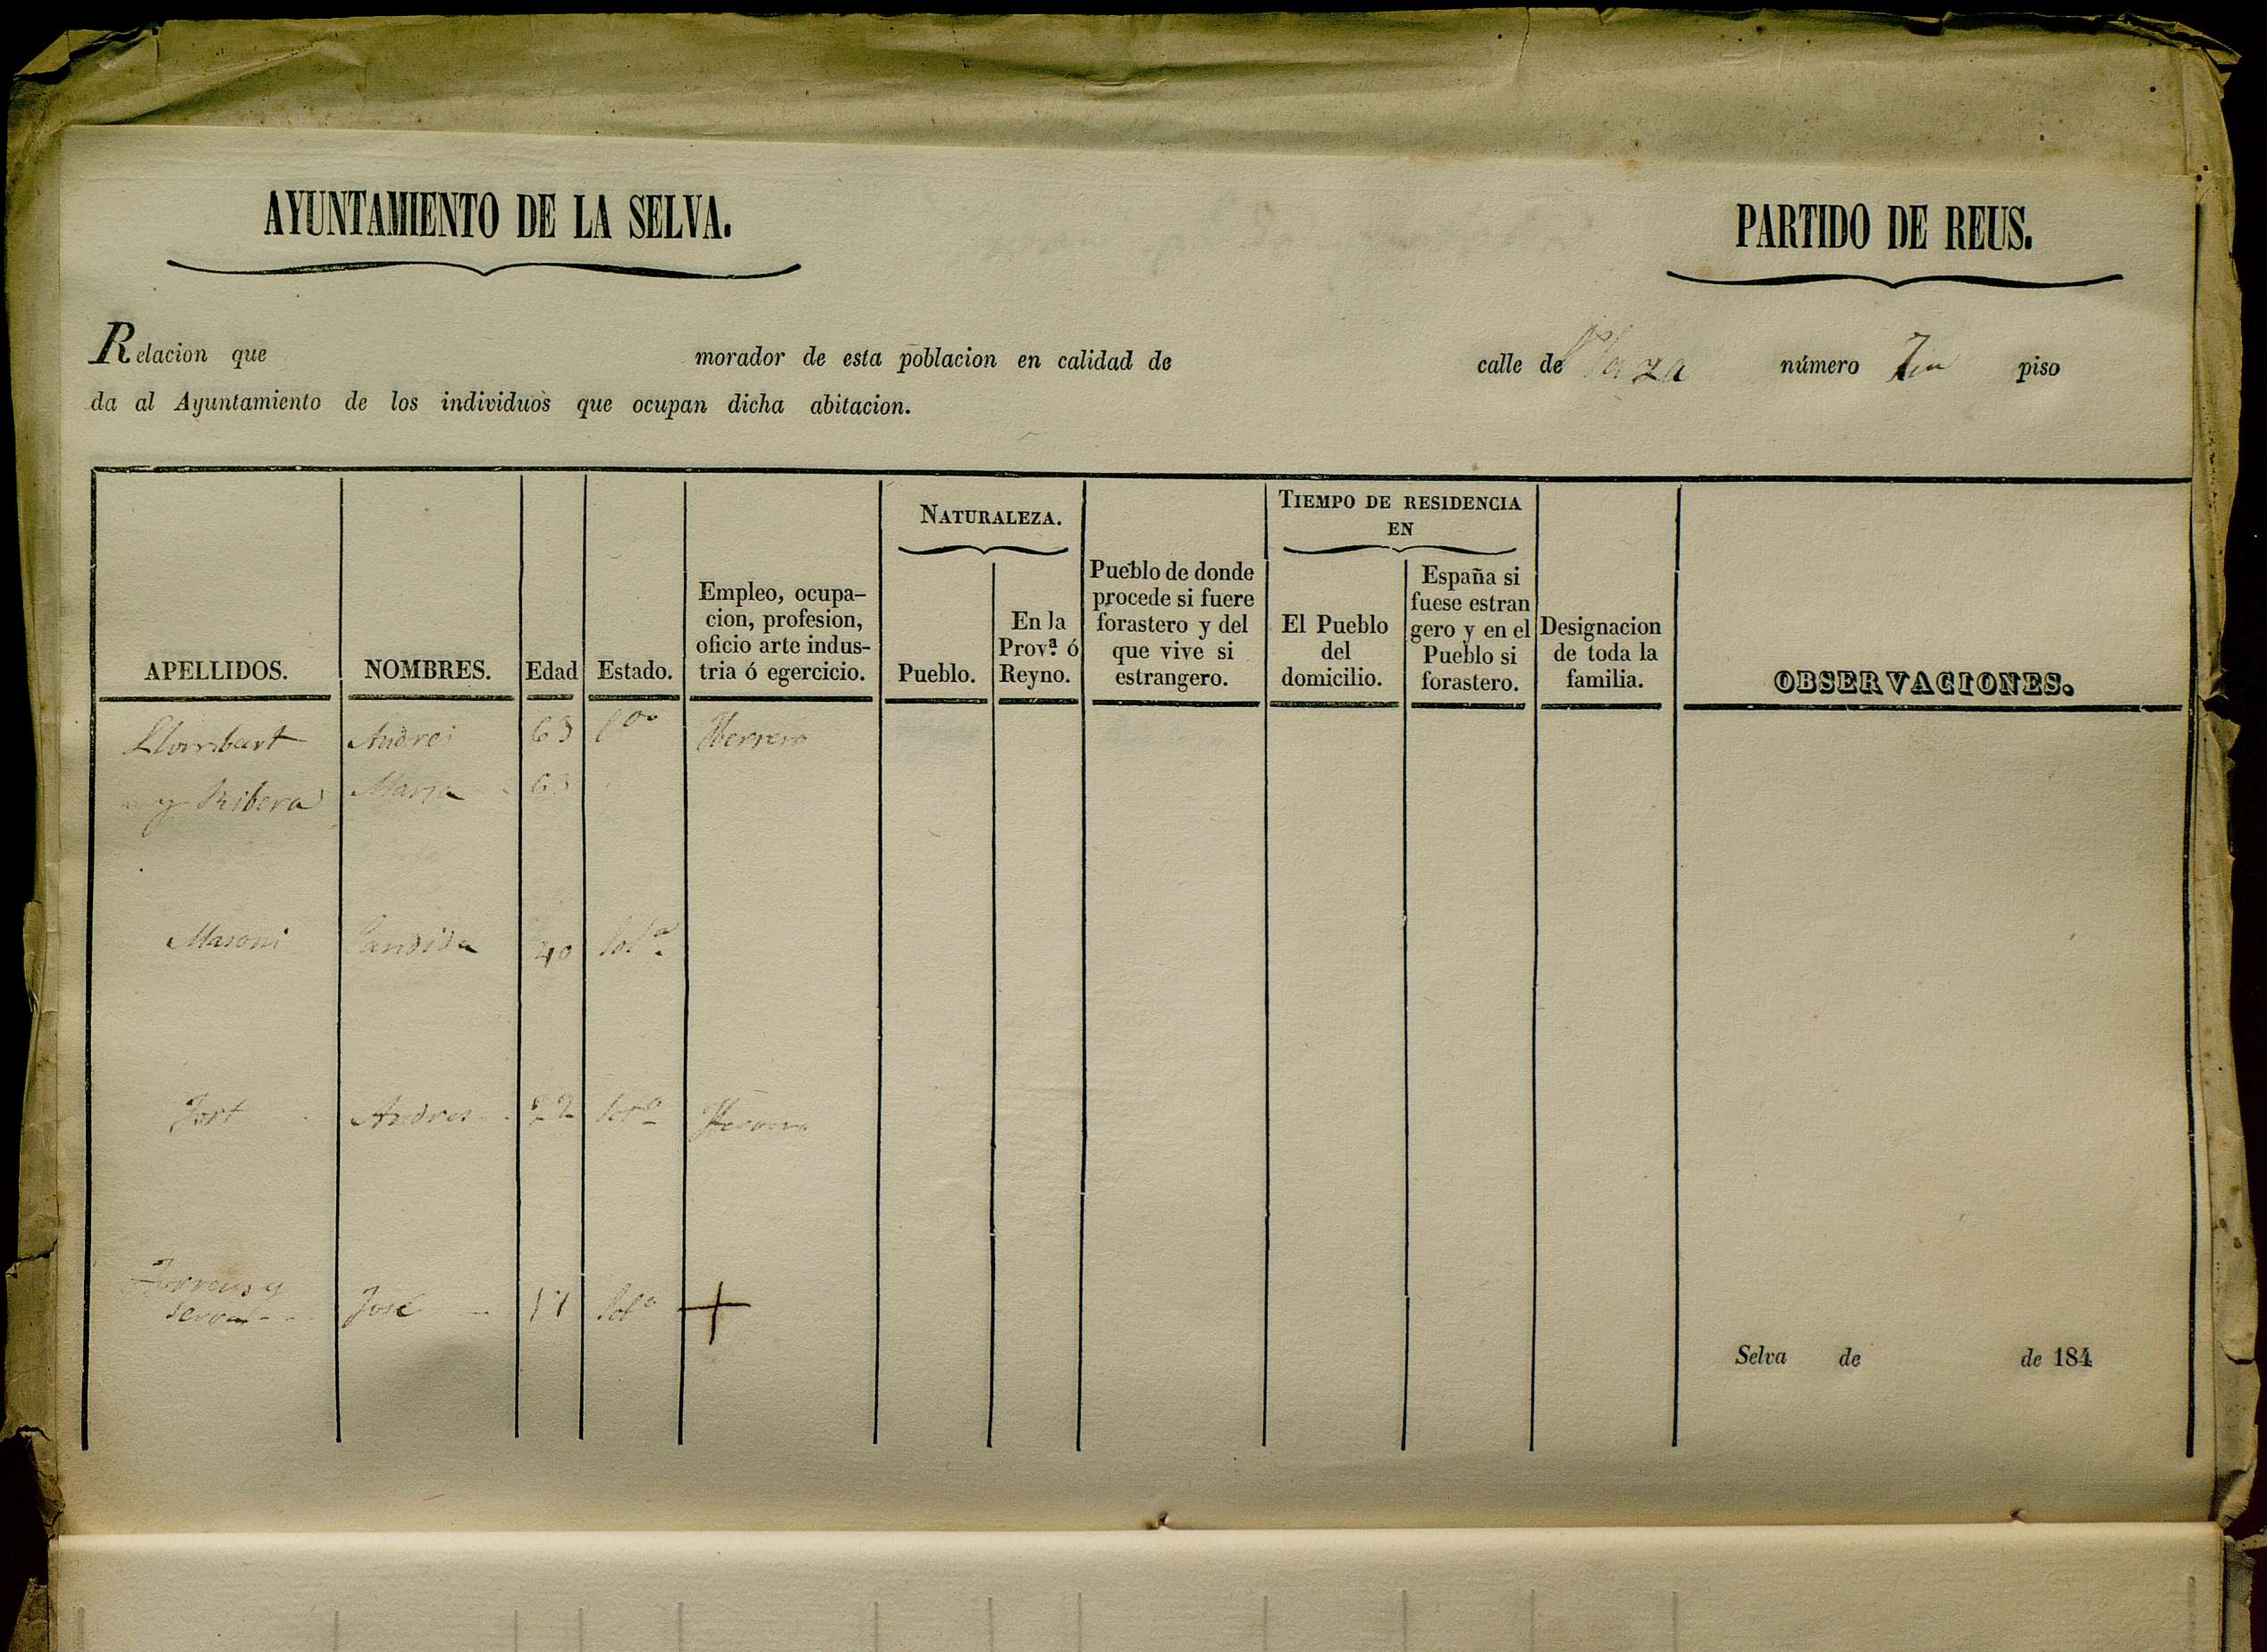 AYUNTAMIENTO DE LA SELVA.
PARTIDO DE REUS.
Relacion que morador de esta poblacion en calidad de calle de Plaza número piso
da al Ayuntamiento de los individuos que ocupan dicha abitacion.
APELLIDOS.
NOMBRES.
Edad
Estado.
Empleo, ocupa-
cion, profesion,
oficio arte indus-
tria ó egercicio.
NATURALEZA.
Pueblo.
En la
Prov.ª ó
Reyno.
Pueblo de donde
procede si fuere
forastero y del
que vive si
estrangero.
TIEMPO DE RESIDENCIA
EN
El Pueblo
del
domicilio.
España si
fuese estran
gero y en el
Pueblo si
forastero.
Designacion
de toda la
familia.
OBSERVACIONES.
Llombart Andres 63 Herrero
y Ribera Maria 63
Masoni Candida 40 Solª
Fort Andres 22 Solº Herrero
José 17 Solº +
Selva de de 184